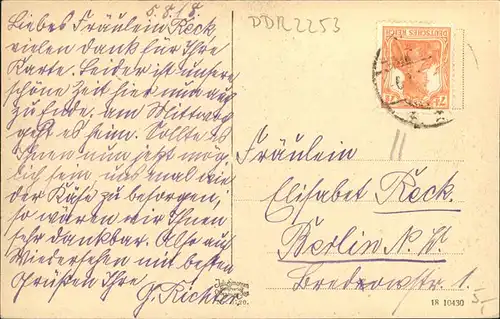 5. 8. 18.
DDR2253
Liebes Fräulein Reck
vielen Dank für Ihre
Karte. Leider ist unsere
schöne Zeit hier nun auch
zu Ende, am Mittwoch
geht es heim. Sollte es
Ihnen nun jetzt mög-
lich sein uns mal wie-
der Käse zu besorgen,
so wären wir Ihnen
sehr dankbar. Also auf
Wiedersehen mit besten
Grüßen Ihre
G. Richter
DEUTSCHES REICH
7½ 7½
Fräulein
Elisabet Reck.
Berlin N. W.
Bredowstr. 1.
18 10430
5,-